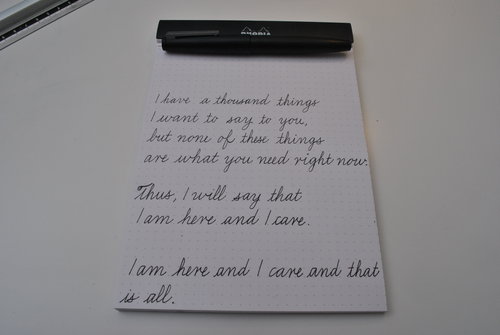 RHODIA
I have a thousand things
I want to say to you,
but none of these things
are what you need right now.
Thus, I will say that
I am here and I care.
I am here and I care and that
is all.